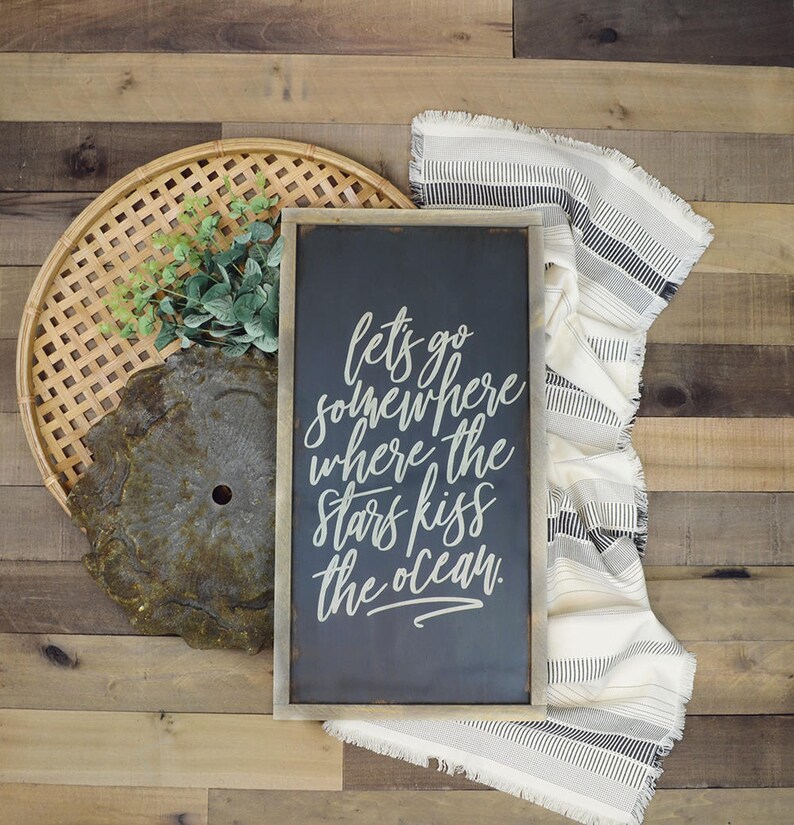 let's go
somewhere
where the
stars kiss
the ocean.